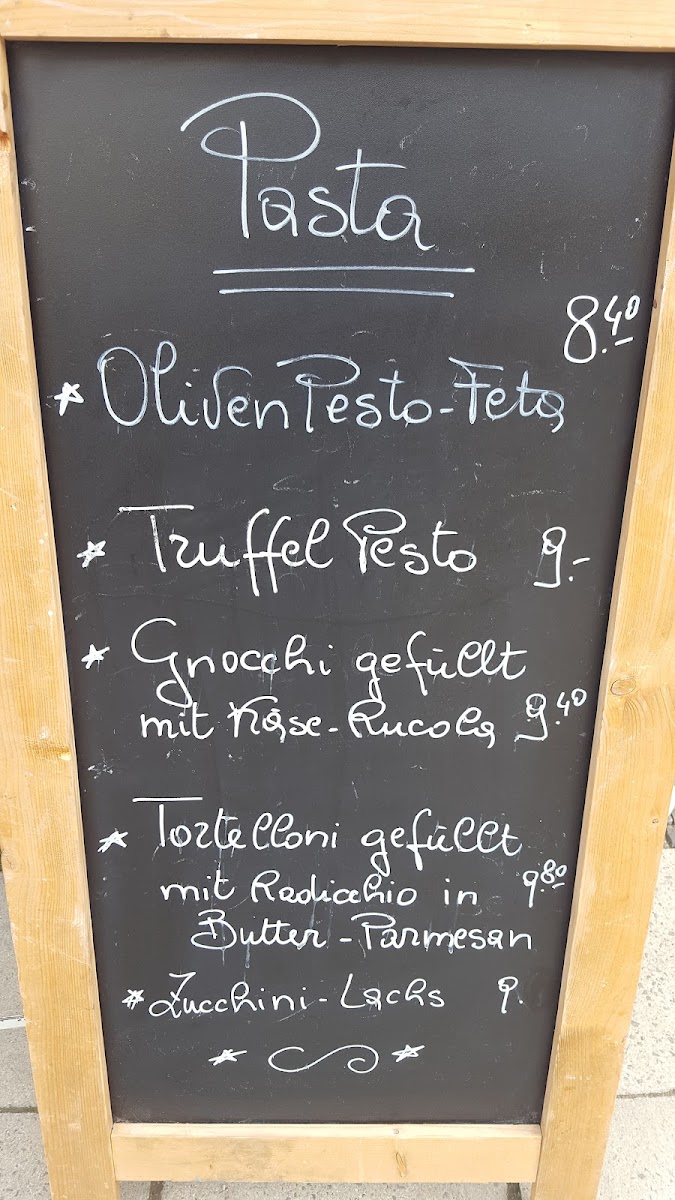 Pasta
8.40
* Oliven Pesto-Feta
* Truffel Pesto 9.-
* Gnocchi gefüllt
mit Käse-Rucola 9.40
* Tortelloni gefüllt
mit Radicchio in 9.80
Butter-Parmesan
* Zucchini-Lachs 9.